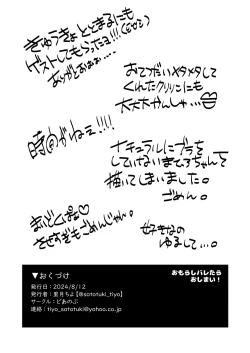 きゅうきょととまるにも
ゲストしてもらったヨ!!!
ありがとおおお…
おてつだいメタメタして
くれたクリリンにも
大大大かんしゃ…
時間がねぇ!!!!
ナチュラルにブラを
していない
ちゃんを
描いてしまいました。
ごめん。
まいどっぴょ♡
ごめんじゃん。
好きなの
ゆるして…。
▼おくづけ
発行日:2024/8/12
発行者:里月ちよ【@satotuki_tiyo】
サークル:どあのぶ
連絡:tiyo_satotuki@yahoo.co.jp
おもらしバレたら
おしまい!